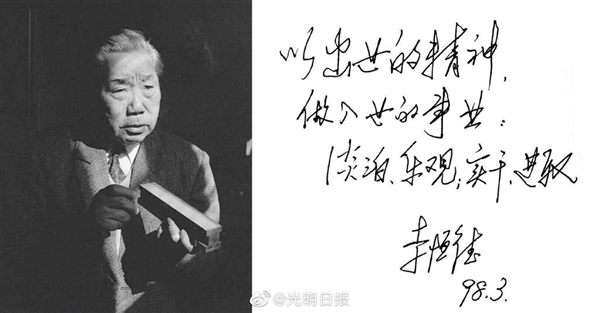 以出世的精神，
做入世的事业：
淡泊、乐观；实干、进取
李恒德
98.3.
@光明日报